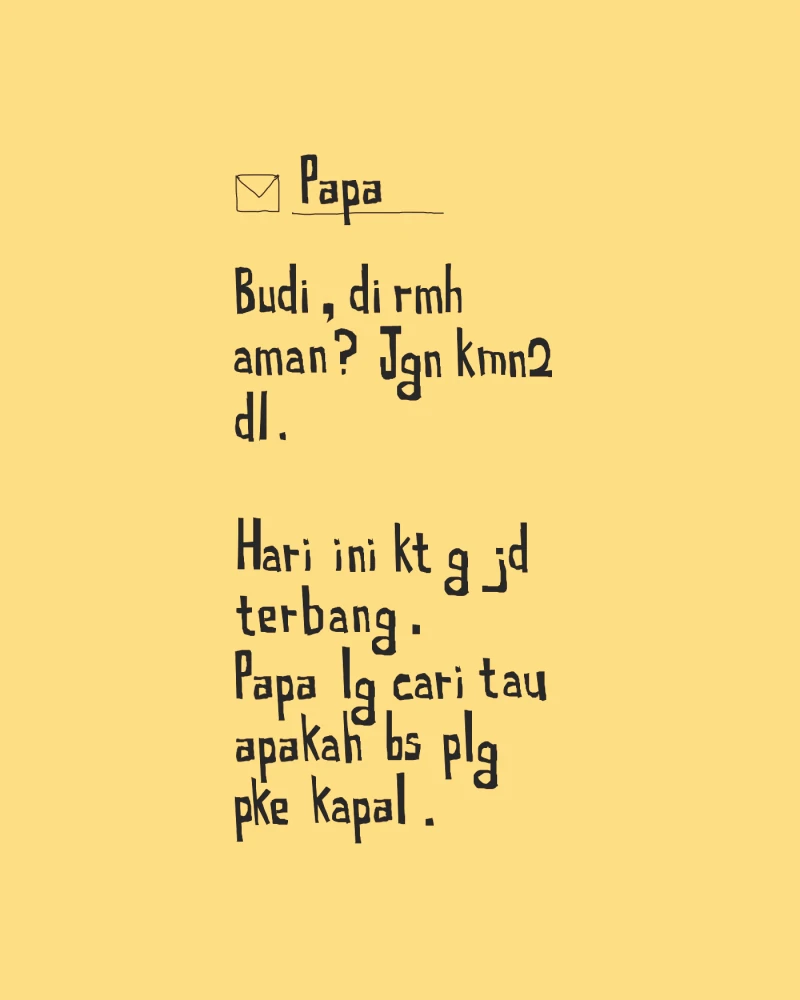 Papa
Budi, di rmh
aman? Jgn kmn2
dl.
Hari ini kt g jd
terbang.
Papa lg cari tau
apakah bs plg
pke kapal.